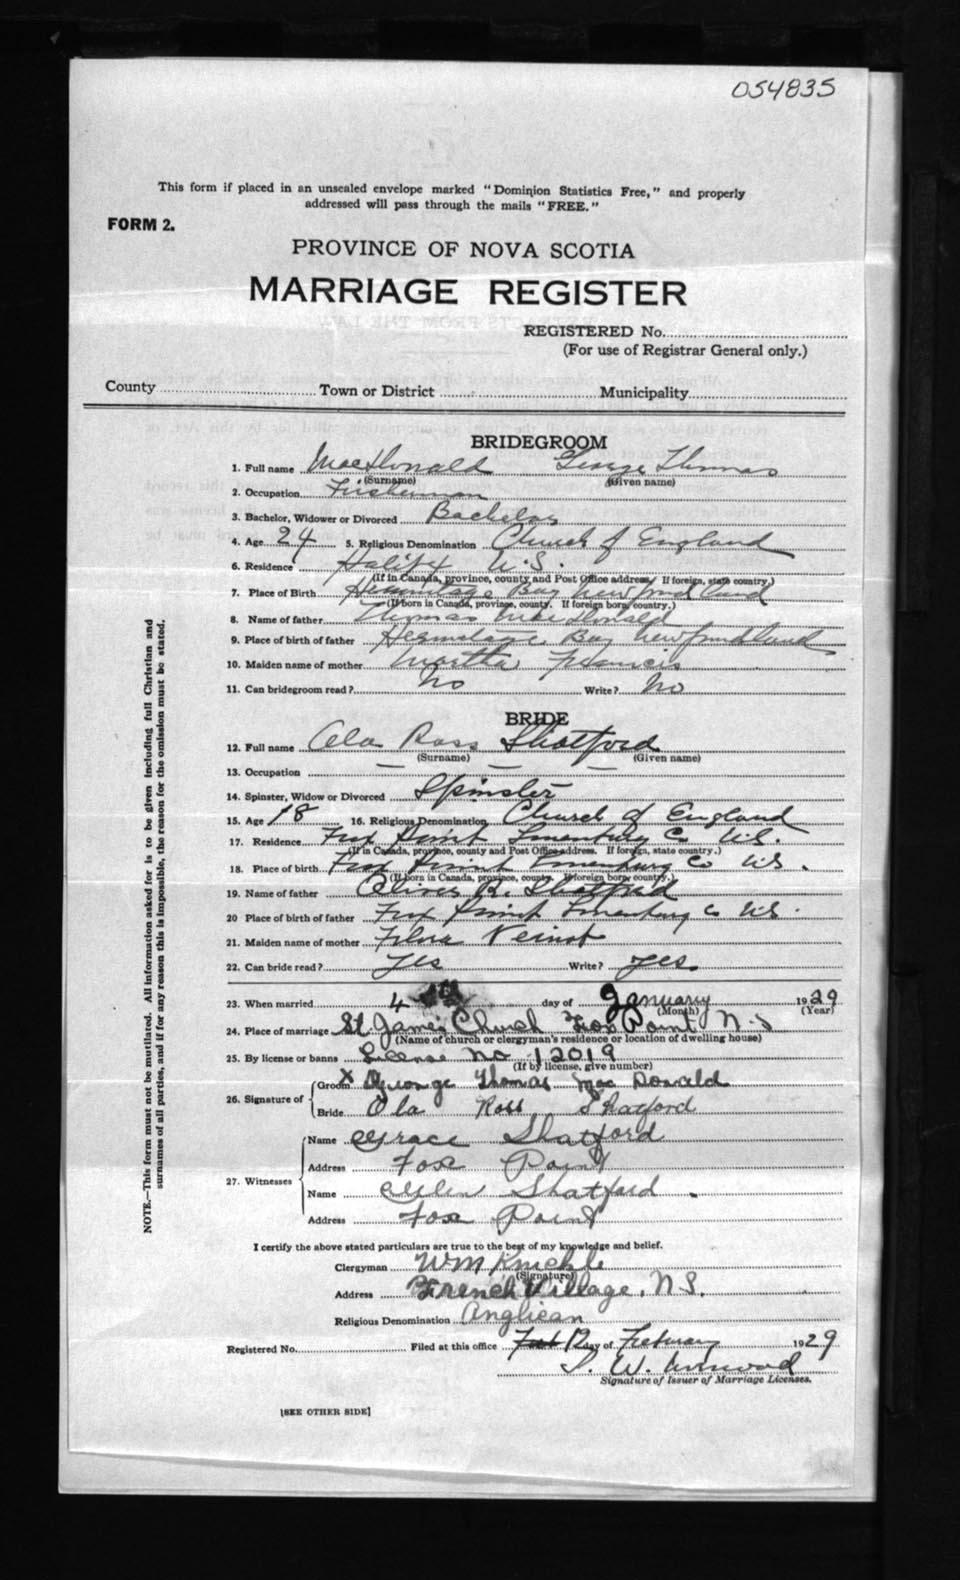 054835
This form if placed in an unsealed envelope marked "Dominion Statistics Free," and properly
addressed will pass through the mails "FREE."
FORM 2.
PROVINCE OF NOVA SCOTIA
MARRIAGE REGISTER
REGISTERED No.
(For use of Registrar General only.)
County Town or District Municipality
BRIDEGROOM
1. Full name MacDonald George Thomas
(Surname) (Given name)
2. Occupation Fisherman
3. Bachelor, Widower or Divorced Bachelor
4. Age 24 5. Religious Denomination Church of England
6. Residence Halifx N.S.
(If in Canada, province, county and Post Office address. If foreign, state country.)
7. Place of Birth Hermitage Bay Newfoundland
(If born in Canada, province, county. If foreign born, country.)
8. Name of father Thomas MacDonald
9. Place of birth of father Hermitage Bay Newfoundland
10. Maiden name of mother Martha Francis
11. Can bridegroom read? No Write? No
BRIDE
12. Full name Ola Ross Shatford
(Surname) (Given name)
13. Occupation — — —
14. Spinster, Widow or Divorced Spinster
15. Age 18 16. Religious Denomination Church of England
17. Residence Fox Point Lunenburg Co N.S.
(If in Canada, province, county and Post Office address. If foreign, state country.)
18. Place of birth Fox Point Lunenburg Co N.S.
(If born in Canada, province, county. If foreign born, country.)
19. Name of father Oliver R. Shatford
20 Place of birth of father Fox Point Lunenburg Co N.S.
21. Maiden name of mother Flora Veinot
22. Can bride read? Yes Write? Yes
23. When married 4 day of January 1929
(Month) (Year)
24. Place of marriage St James Church Fox Point N.S
(Name of church or clergyman's residence or location of dwelling house)
25. By license or banns License No 12019
(If by license, give number)
26. Signature of Groom X George Thomas Mac Donald
Bride Ola Ross Shatford
27. Witnesses Name Grace Shatford
Address Fox Point
Name Shatford
Address Fox Point
I certify the above stated particulars are true to the best of my knowledge and belief.
Clergyman WM Knickle
(Signature)
Address French Village, N.S.
Religious Denomination Anglican
Registered No. Filed at this office 12 day of February 1929
S. W.
Signature of Issuer of Marriage Licenses.
[SEE OTHER SIDE]
NOTE.—This form must not be mutilated. All information asked for is to be given including full Christian and
surnames of all parties, and if for any reason this is impossible, the reason for the omission must be stated.